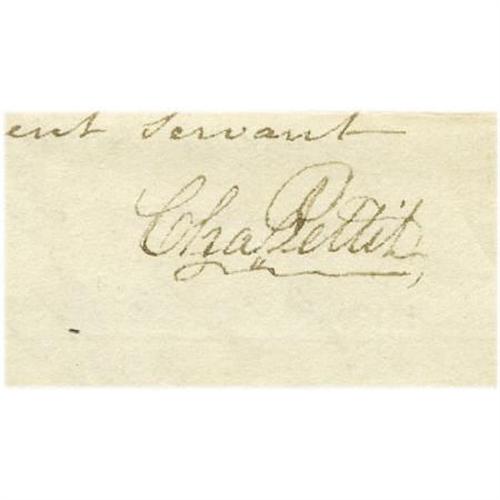 ent Servant
Cha Pettit